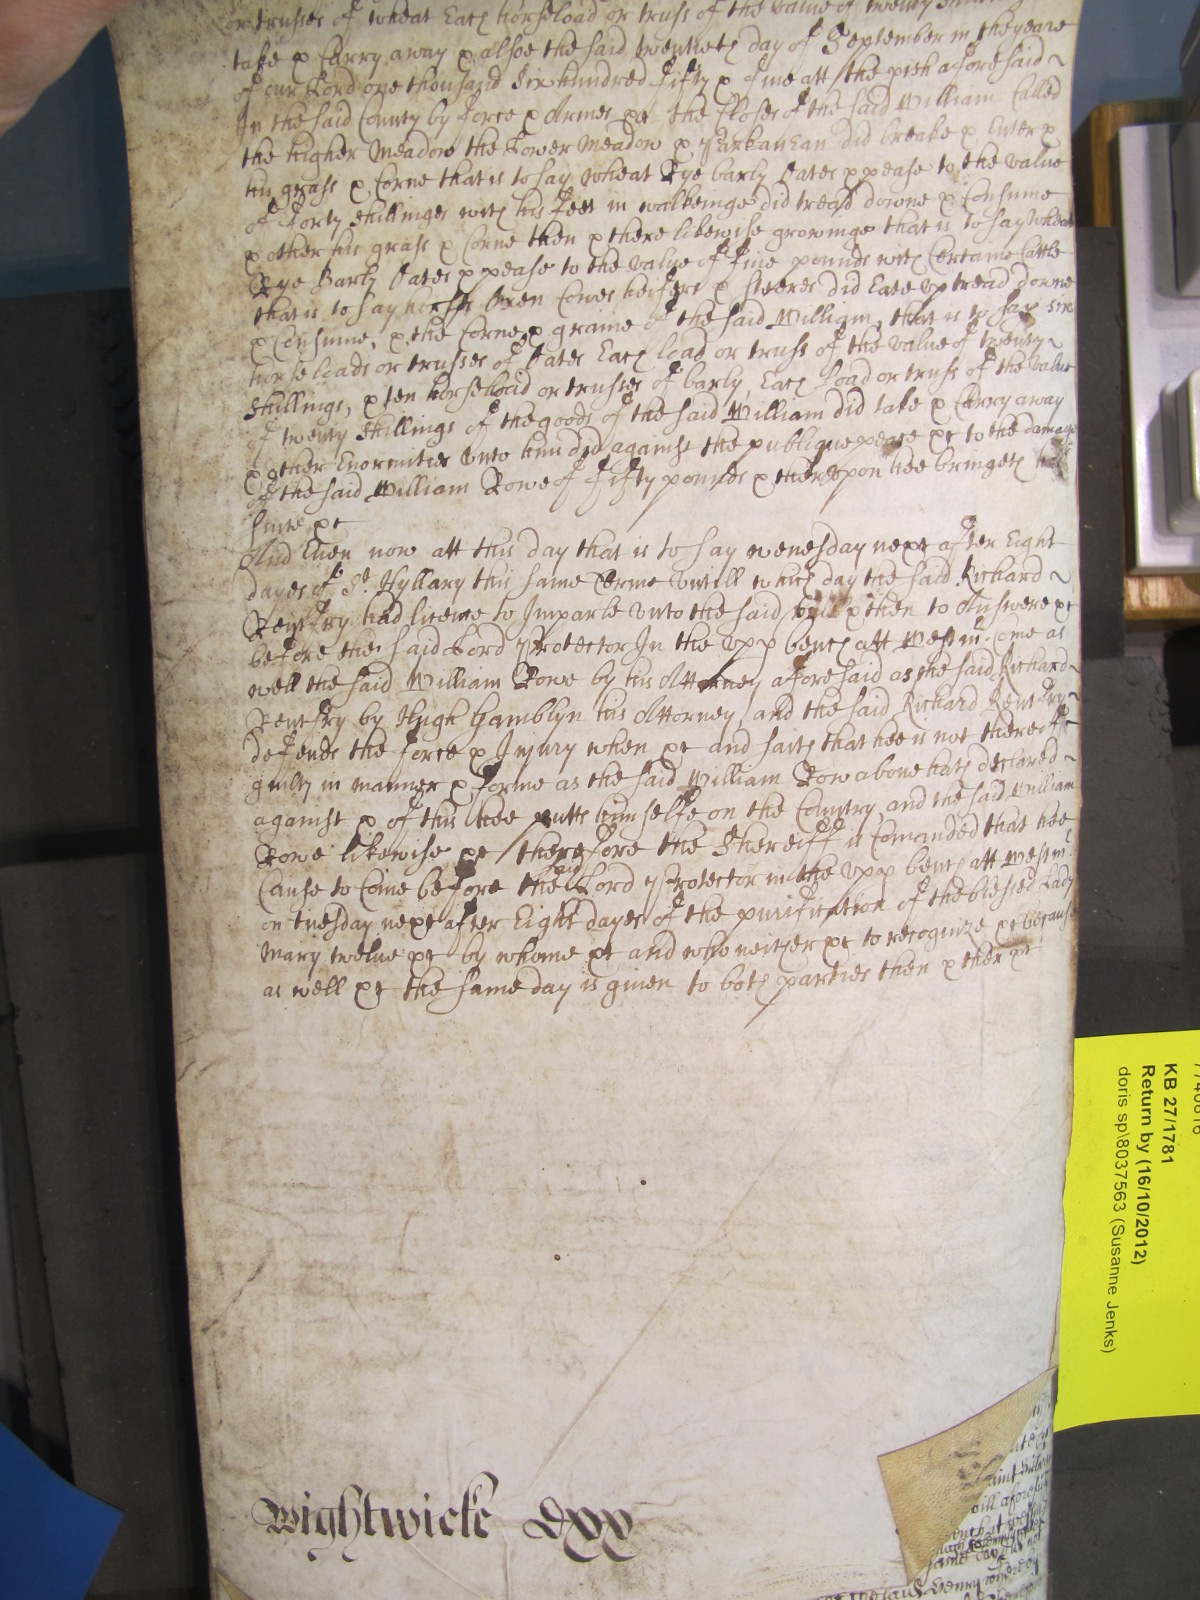 or trusses of wheat Each horseload or truss of the value of twenty
take & Carry away & alsoe the said twentieth day of September in the yeare
of our Lord one thousand Six hundred fifty & five att the pish aforesaid
In the said County by force & Armes &c the Closes of the said William Called
the higher Meadow the Lower Meadow & did breake & Enter &
his grass & Corne that is to say wheat Rye barly Oates & pease to the value
of forty shillinges with his feet in walkeinge did tread downe & Consume
& other his grass & Corne then & there likewise growinge that is to say wheat
Rye Barly Oates & pease to the value of five pounds with Certaine Cattle
that is to say horses Oxen Cowes heifers & steeres did Eate up tread downe
& Consume, & the Corne & graine of the said William, that is to say six
horse loads or trusses of Oates Each load or truss of the value of twenty
shillings, & ten horseload or trusses of barly, Each Load or truss of the value
of twenty shillings of the goods of the said William did take & Carry away
& other Enormities unto him did against the publique peace &c to the damage
of the said William Rowe of fifty pounds & thereupon hee bringeth
suite &c
And Even now att this day that is to say wenesday next after Eight
dayes of St. Hyllary this same Terme untill which day the said Richard
Rentfry had licence to Imparle unto the said bill & then to Answere &c
before the said Lord Protector In the upp bench att Westm Come as
well the said William Rowe by his Attorney aforesaid as the said Richard
Rentfry by Hugh Hamblyn his Attorney, and the said Richard Rentfry
defends the force & Injury when &c and saith that hee is not thereof
guilty in manner & forme as the said William Row above hath declared
against & of this hee putts himselfe on the Country, and the said William
Rowe likewise &c therefore the Shereiff is Comanded that hee
Cause to Come before the said Lord Protector in the upp bench att Westm
on tuesday next after Eight dayes of the purification of the blessed Lady
Mary twelve &c by whome &c and who neither &c to recognize &c because
as well &c the same day is given to both parties then & there &c
Wightwicke Dxxx
KB 27/1781
Return by (16/10/2012)
doris sp\8037563 (Susanne Jenks)